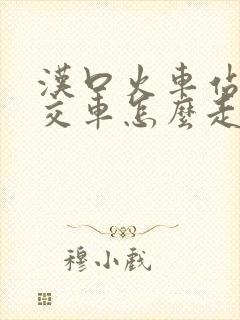 漢口火車站
交車怎麼走
穆小戲